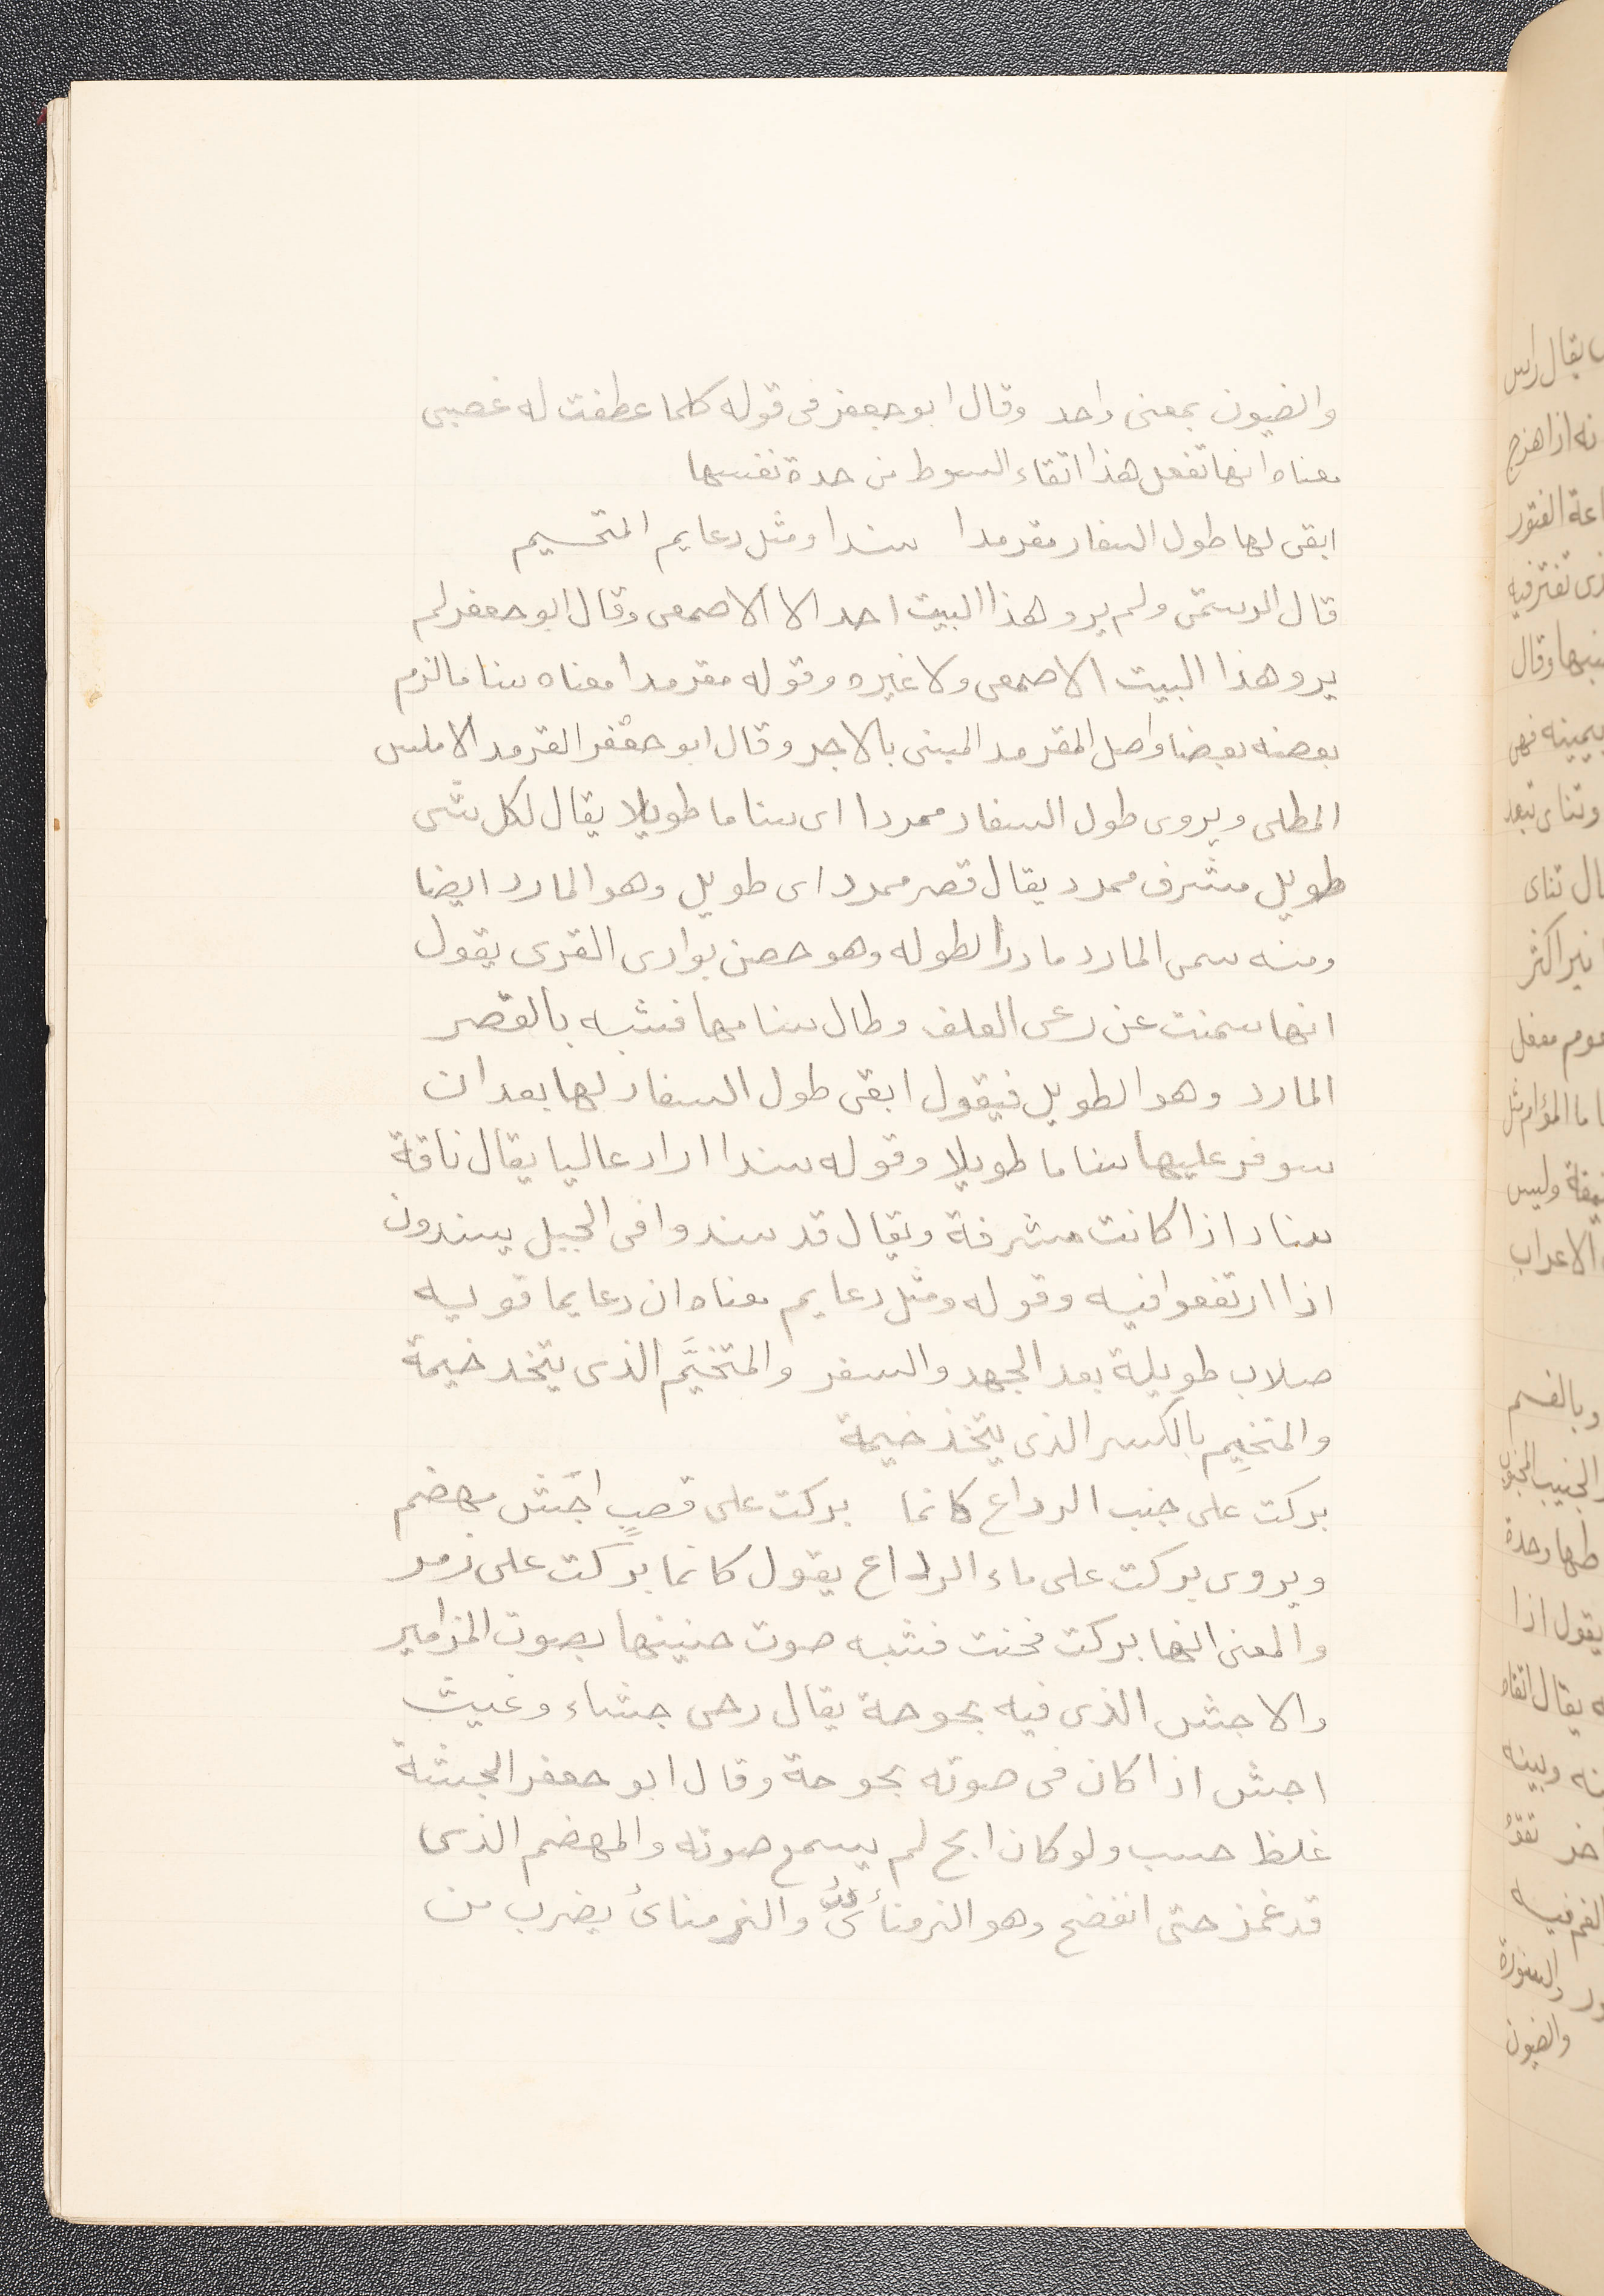 والضيون بمعنى واحد وقال ابو جعفر فى قوله كلما عطفت له غضبى
معناه انها تفعل هذا اتقاء السوط من حدة نفسها
ابقى لها طول السفار مقرمدا سندا ومثل دعايم المتخيم
قال الرستمى ولم يرو هذا البيت احد الا الاصمعى وقال ابو جعفر لم
يرو هذا البيت الاصمعى ولا غيره وقوله مقرمدا معناه سناما لزم
بعضه بعضا واصل المقرمد المبنى بالاجر وقال ابو جعفر القرمد الاملس
المطلى ويروى طول السفار ممردا اى سناما طويلا يقال لكل شى
طويل مشرف ممرد يقال قصر ممرد اى طويل وهو المارد ايضا
ومنه سمى المارد ماردا لطوله وهو حصن بوادى القرى يقول
انها سمنت عن رعى العلف وطال سنامها فشبه بالقصر
المارد وهو الطويل فيقول ابقى طول السفار لها بعد ان
سوفر عليها سناما طويلا وقوله سندا اراد عاليا يقال ناقة
سناد اذا كانت مشرفة ويقال قد سندوا فى الجبل يسندون
اذا ارتفعوا فيه وقوله ومثل دعايم معناه ان دعايما قويه
صلاب طويلة بعد الجهد والسفر والمتخيَّم الذى يتخد خيمة
والمتخيِم بالكسر الذى يتخذ خيمة
بركت على جنب الرداع كانما بركت على قصبٍ اجَش مهضم
ويروى بركت على ماء الرداع يقول كانما بركت على زمر
والمعنى انها بركت فحنت فشبه صوت حنينها بصوت المزامير
والاجش الذى فيه بحوحة يقال رحى جشاء وغيث
اجش اذا كان فى صوته بحوحة وقال ابو جعفر الجشة
غلظ حسب ولو كان ابح لم يسمع صوته والمهضم الذى
قد غمز حتى انفضح وهو النرمناىُ والنرمناىُ يضرب من